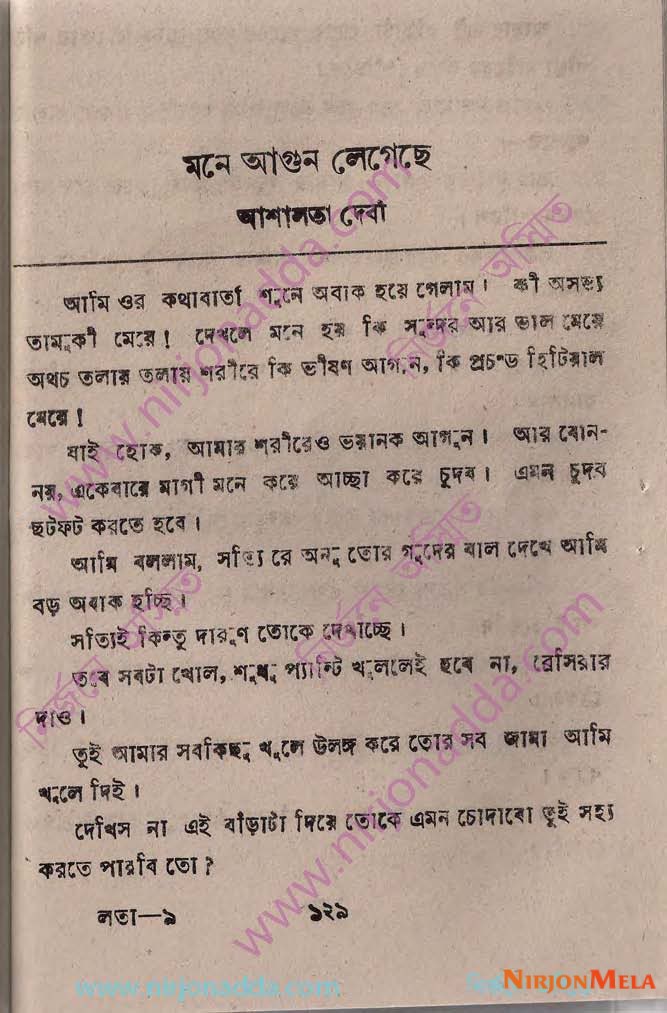 মনে আগুন লেগেছে
আশালতা দেবী
আমি ওর কথাবার্তা শুনে অবাক হয়ে গেলাম। কী অসভ্য
তামুকী মেয়ে! দেখলে মনে হয় কি সুন্দর আর ভাল মেয়ে
অথচ তলায় তলায় শরীরে কি ভীষণ আগুন, কি প্রচণ্ড হিটিয়াল
মেয়ে!
যাই হোক, আমার শরীরেও ভয়ানক আগুন। আর বোন-
নয়, একেবারে মাগী মনে করে আচ্ছা করে চুদব। এমন চুদব
ছটফট করতে হবে।
আমি বললাম, সত্যি রে অনু তোর গুদের বাল দেখে আমি
বড় অবাক হচ্ছি।
সত্যিই কিন্তু দারুণ তোকে দেখাচ্ছে।
তবে সবটা খোল, শুধু প্যান্টি খুললেই হবে না, ব্রেসিয়ার
দাও।
তুই আমার সবকিছু খুলে উলঙ্গ করে তোর সব জামা আমি
খুলে দিই।
দেখিস না এই বাঁড়াটা দিয়ে তোকে এমন চোদাবো তুই সহ্য
করতে পারবি তো?
লতা—৯ ১২৯
www.nirjonadda.com
নির্জনে অস্মিত
www.nirjonadda.com
নির্জনে অস্মিত
নির্জনে অস্মিত
www.nirjonadda.com
NIRJONMELA